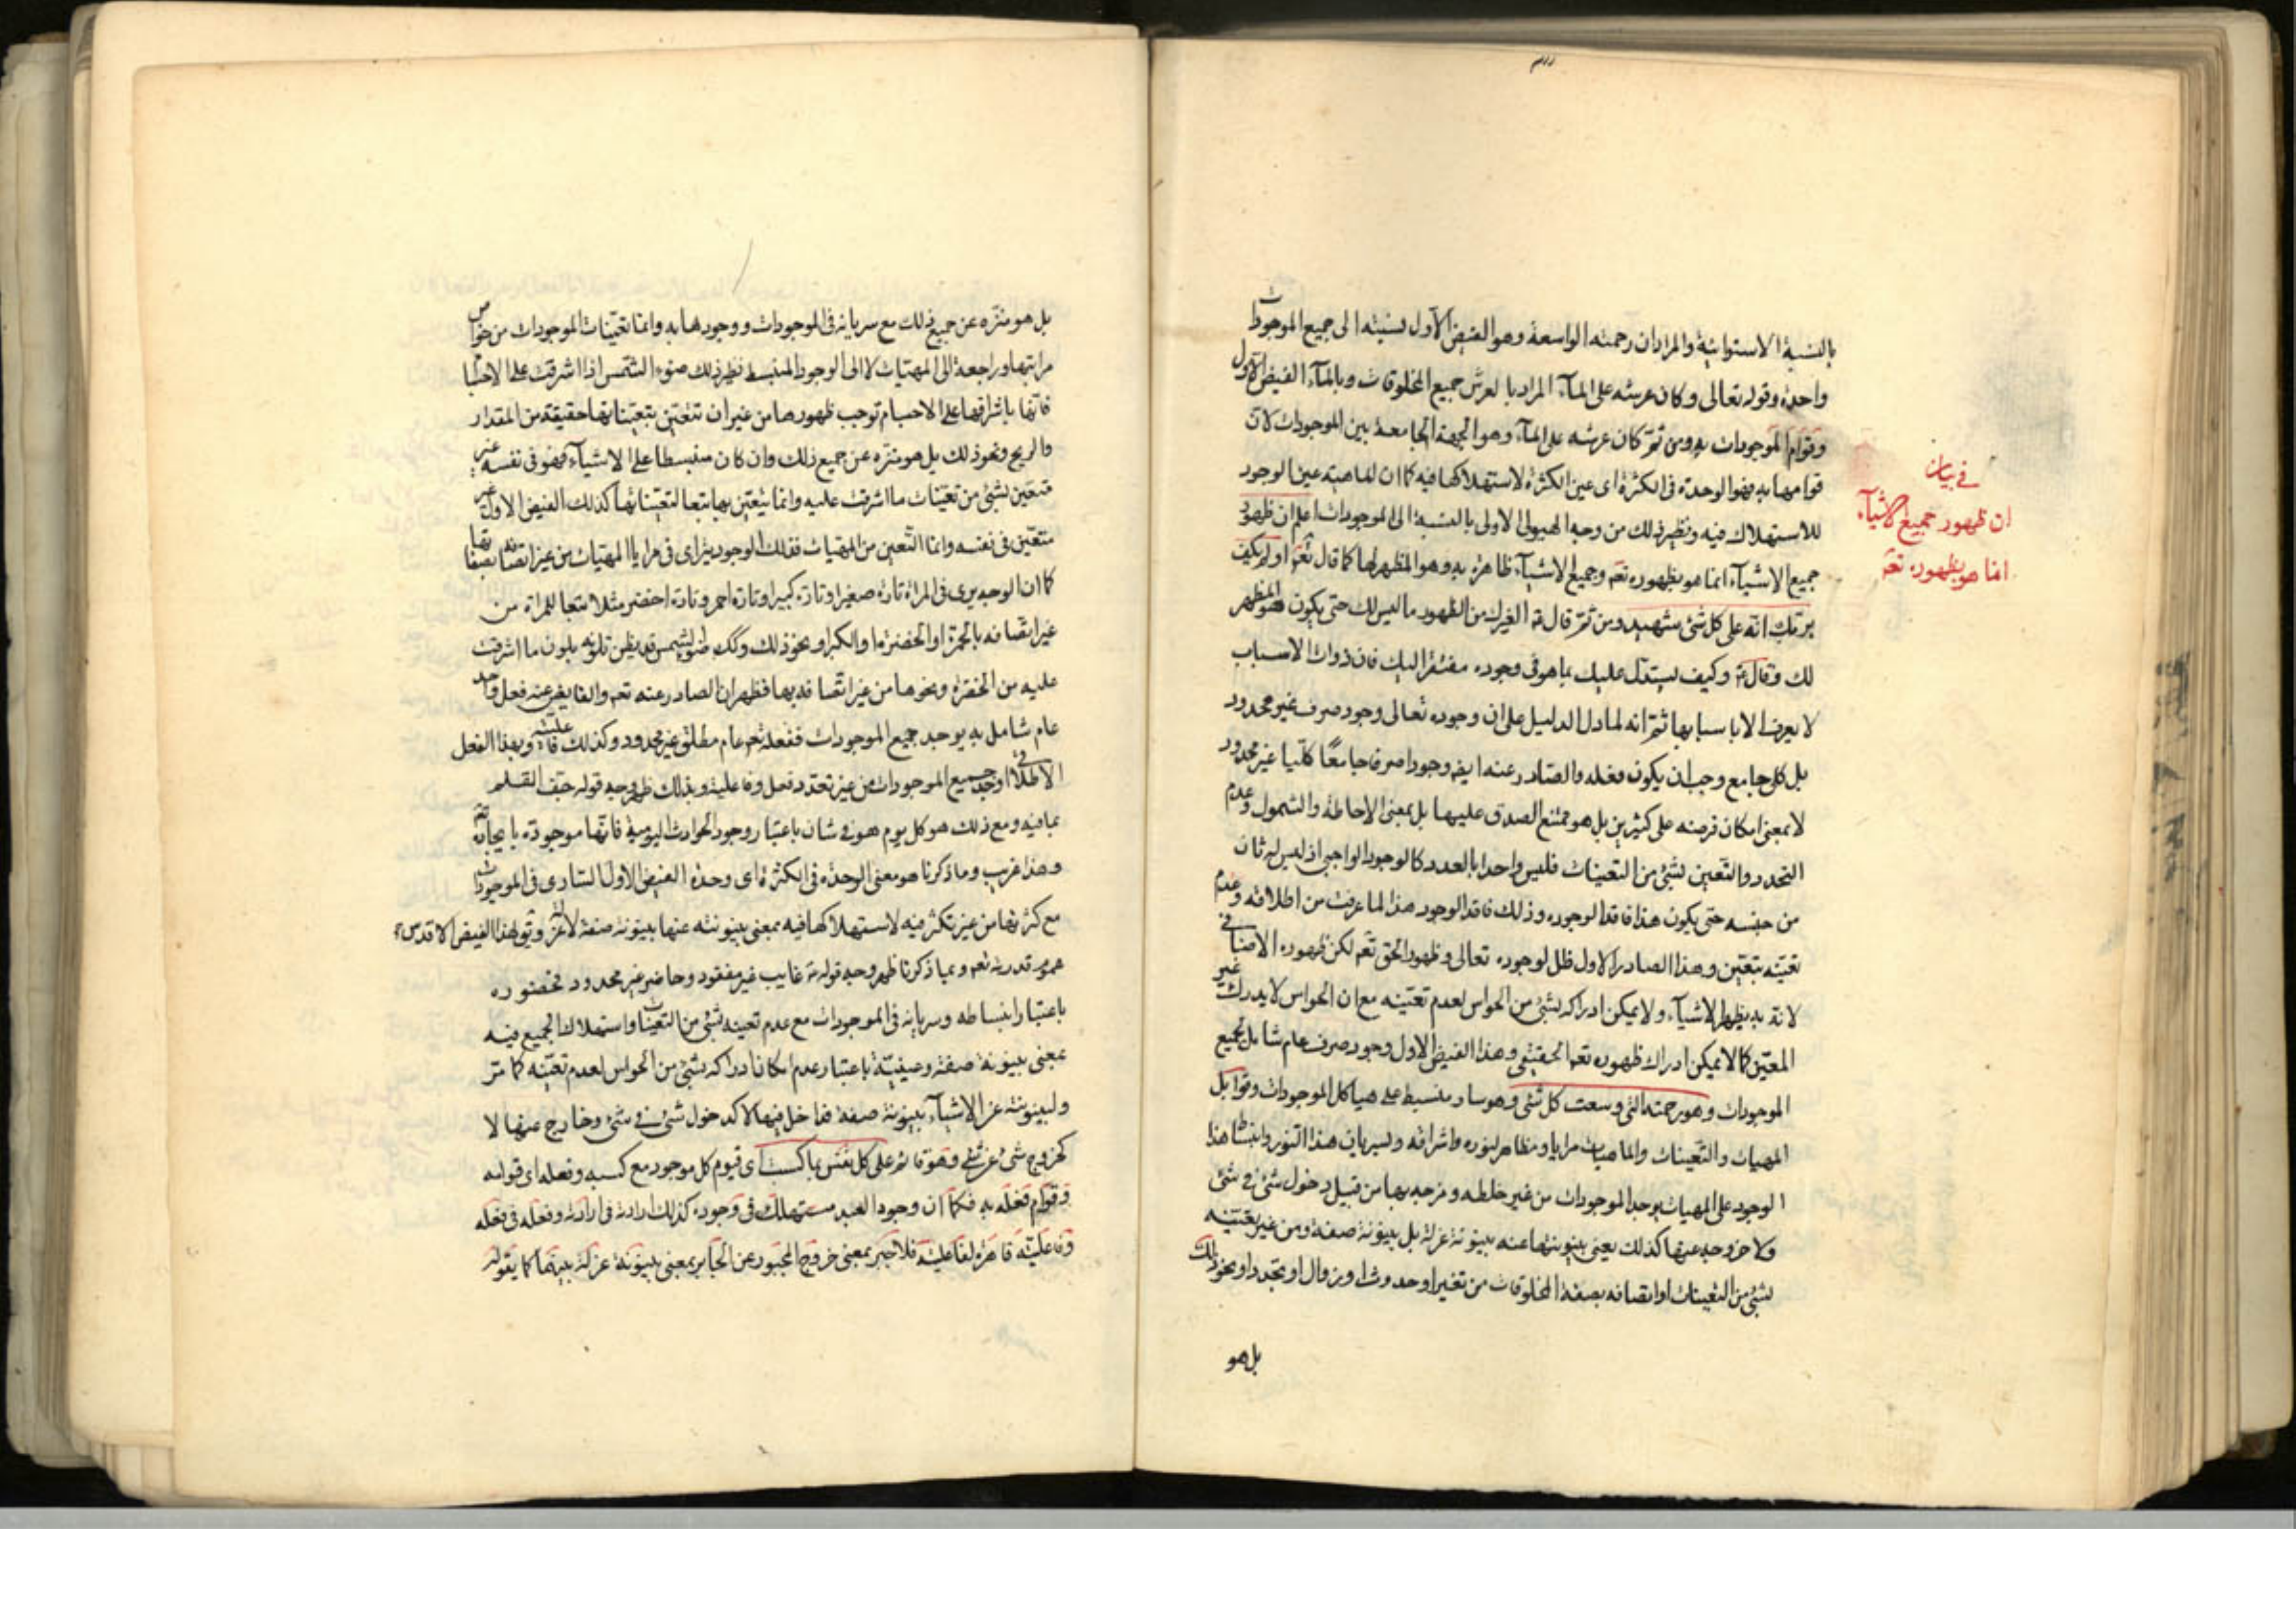 بالنسبة الاستوائية والمراد ان رحمته الواسعة وهو الفيض الاول نسبته الى جميع الموجودات
واحدة وقوله تعالى وكان عرشه على المآء المراد بالعرش جميع المخلوقات وبالمآء الفيض الاول
وقوام الموجودات به ومن ثمّ كان عرشه على المآء وهو الجهة الجامعة بين الموجودات لانّ
قوامها به فهو الوحدة فى الكثرة اى عين الكثرة لاستهلاكها فيه كما ان للماهية عين الوجود
للاستهلاك فيه ونظير ذلك من وجه الهيولى الاولى بالنسبة الى الموجودات اعلم ان ظهور
جميع الاشيآء انما هو بظهوره تعم وجميع الاشيآء ظاهرة به وهو المظهر لها كما قال تعم اولم يكف
بربك انه على كل شئ شهيد ومن ثمّ قال ع الغيرك من الظهور ما ليس لك حتى يكون هو المظهر
لك وقال ع وكيف يستدل عليك بما هو فى وجوده مفتقر اليك فان ذوات الاسباب
لا يعرف الا باسبابها ثم انه لما دل الدليل على ان وجوده تعالى وجود صرف غير محدود
بل كل جامع وجب ان يكون فعله والصادر عنه ايضا وجودا صرفا جامعًا كليا غير محدود
لا بمعنى امكان فرضه على كثيرين بل هو ممتنع الصدق عليها بل بمعنى الاحاطة والشمول وعدم
التحدد والتعين لشئ من التعينات فليس واحدا بالعدد كالوجود الواجبى اذ ليس له ثان
من جنسه حتى يكون هذا فاقد الوجوده وذلك فاقد الوجود هذا لما عرفت من اطلاقه وعدم
تعينه بتعين وهذا الصادر الاول ظل لوجوده تعالى وظهور الحق تعم لكن ظهوره الاضافى
لانه به يظهر الاشيآء ولا يمكن ادراكه لشئ من الحواس لعدم تعينه مع ان الحواس لا يدرك غير
المعين كما لا يمكن ادراك ظهوره تعم الحقيقى وهذا الفيض الاول وجود صرف عام شامل لجميع
الموجودات وهو رحمته التى وسعت كل شئ وهو سار منبسط على هياكل الموجودات وقوابل
المهيات والتعينات والماهيات مرايا ومظاهر لنوره واشراقه ولسريان هذا النور وانبساط هذا
الوجود على المهيات يوجد الموجودات من غير خلطه ومزجه بها من قبيل دخول شئ فى شئ
ولا خروجه عنها كذلك يعنى بينونتها عنه بينونة عزلة بل بينونة صفة ومن غير تعينه
لشئ من التعينات او اتصافه بصفة المخلوقات من تغير او حدوث او زوال او تجدد او نحو ذلك
بل هو
فى بيان
ان ظهور جميع الاشيآء
انما هو بظهوره تعم
بل هو منزه عن جميع ذلك مع سريانه فى الموجودات ووجودها به وانما تعينات الموجودات من خواص
مراتبها وراجعة الى المهيات لا الى الوجود المنبسط نظير ذلك ضوء الشمس اذا اشرقت على الاجسام
فانها باشراقها على الاجسام توجب ظهورها من غير ان تتعين بتعيناتها حقيقة من المقدار
والريح ونحو ذلك بل هو منزه عن جميع ذلك وان كان منبسطا على الاشيآء فهو فى نفسه غير
متعين لشئ من تعينات ما اشرقت عليه وانما يتعين بها بتعا لتعيناتها كذلك الفيض الاول غير
متعين فى نفسه وانما التعين من المهيات فذلك الوجود يترآى فى مرايا المهيات من غير اتصافه بصفاتها
كما ان الوجه يرى فى المرآة تارة صغيرا وتارة كبيرا وتارة احمر وتارة اخضر مثلا بتعا للمرآة من
غير اتصافه بالحمرة او الخضرة او الكبر او نحو ذلك وكك ضوء الشمس قد يظن تلونه بلون ما اشرقت
عليه من الخضرة ونحوها من غير اتصافه بها فظهر ان الصادر عنه تعم والفايض عنه فعل واحد
عام شامل به يوجد جميع الموجودات ففعله تعم عام مطلق غير محدود وكذلك فاعليته وبهذا الفعل
الاطلاقى اوجد جميع الموجودات من غير تعدد فعل وفاعلية وبذلك ظهر وجه قوله جف القلم
بما فيه ومع ذلك هو كل يوم هو فى شان باعتبار وجود الحوادث اليومية فانها موجودة بايجاده
وهذا غريب وما ذكرنا هو معنى الوحدة فى الكثرة اى وحدة الفيض الاول السارى فى الموجودات
مع كثرتها من غير تكثر فيه لاستهلاكها فيه بمعنى بينونته عنها بينونة صفة لا عزلة وتق لهذا الفيض الاقدس
عموم قدرته تعم وبما ذكرنا ظهر وجه قوله ع غايب غير مفقود وحاضر غير محدود فحضوره
باعتبار انبساطه وسريانه فى الموجودات مع عدم تعينه لشئ من التعينات واستهلاك الجميع فيه
بمعنى بينونة صفة وغيبته باعتبار عدم امكان ادراكه بشئ من الحواس لعدم تعينه كما مرّ
ولبينونته عن الاشيآء بينونة صفة فداخل فيها لا كدخول شئ فى شئ وخارج عنها لا
كخروج شئ عن شئ وهو قائم على كل نفس بما كسبت اى قيوم كل موجود مع كسبه وفعله اى قوامه
وقوام فعله به فكما ان وجود العبد مستهلك فى وجوده كذلك ارادته فى ارادته وفعله فى فعله
وفاعليته قاهرة لفاعليته فلا جبر بمعنى خروج المجبور عن الجابر بمعنى بينونة عزلة بينهما كما يقوله